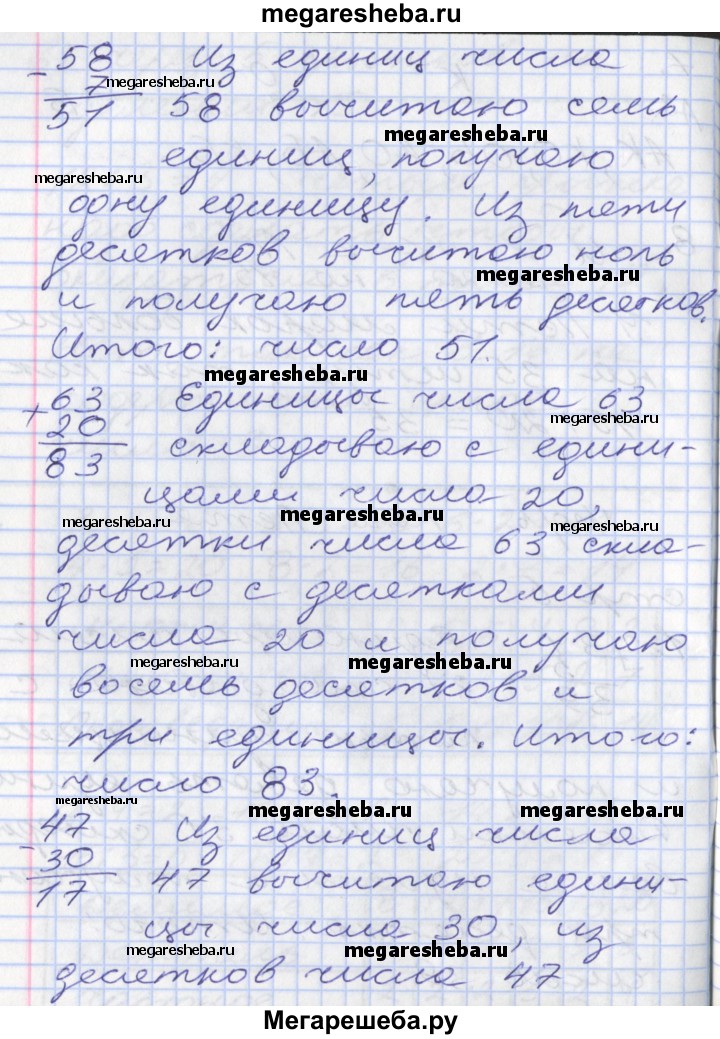 megaresheba.ru
- 58 Из единиц числа
7 megaresheba.ru
51 58 вычитаю семь
megaresheba.ru
единиц, получаю
megaresheba.ru
одну единицу. Из пяти
десятков вычитаю ноль
megaresheba.ru
и получаю пять десятков.
Итого: число 51.
megaresheba.ru
+ 63 Единицы числа 63
megaresheba.ru
20 складываю с едини-
83
цами числа 20,
megaresheba.ru
megaresheba.ru megaresheba.ru
десятки числа 63 скла-
дываю с десятками
числа 20 и получаю
megaresheba.ru megaresheba.ru
восемь десятков и
три единицы. Итого:
число 83.
megaresheba.ru megaresheba.ru megaresheba.ru
- 47 Из единиц числа
30
17 47 вычитаю едини-
цы числа 30, из
megaresheba.ru megaresheba.ru
десятков числа 47
Мегарешеба.ру